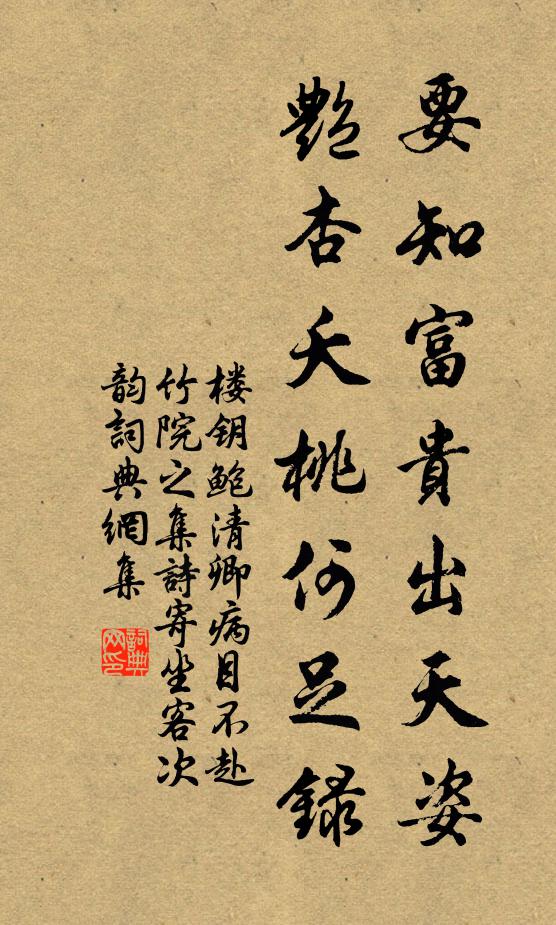 要知富貴出天姿
艷杏夭桃何足錄
楼钥鲍清卿病目不赴
竹院之集詩寄坐客次
韵詞典網集
詞典
网印